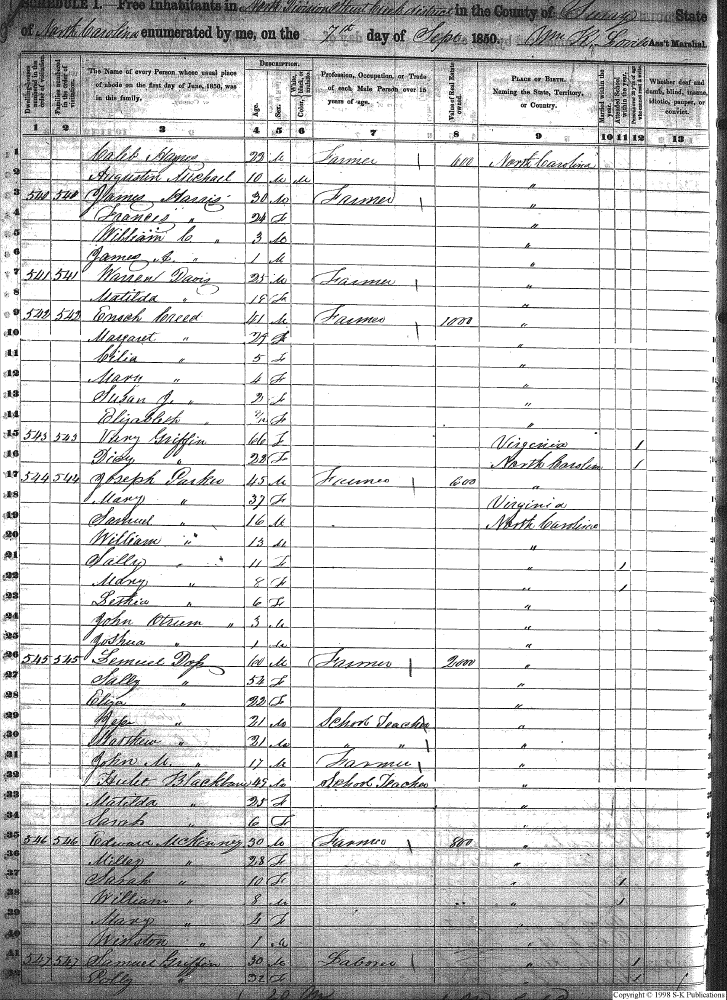 SCHEDULE I.—Free Inhabitants in North Division in the County of Surry State
of North Carolina enumerated by me, on the 7th day of Sept 1850. Wm Ass't Marshal.
Dwelling-houses numbered in the order of visitation.
Families numbered in the order of visitation.
The Name of every Person whose usual place of abode on the first day of June, 1850, was in this family.
DESCRIPTION.
Age.
Sex.
White, Color, black, or mulatto.
Profession, Occupation, or Trade of each Male Person over 15 years of age.
Value of Real Estate owned.
PLACE OF BIRTH. Naming the State, Territory, or Country.
Married within the year.
Attended School within the year.
Whether deaf and dumb, blind, insane, idiotic, pauper, or convict.
1 2 3 4 5 6 7 8 9 10 11 12 13
1 22 M Farmer 600 North Carolina
2 Augustin Michael 10 M M "
3 540 540 James Harris 30 M Farmer "
4 Francis " 24 F "
5 William C. " 3 M "
6 James A. " 1 M "
7 541 541 Warren Davis 25 M Farmer "
8 Matilda " 18 F "
9 542 542 Enoch Creed 41 M Farmer 1000 "
10 Margaret " 29 F "
11 Cilia " 5 F "
12 Mary " 4 F "
13 Susan J. " 2 F "
14 Elizabeth " F "
15 543 543 Griffin 66 F Virginia 1
16 Dicy " 28 F North Carolina 1
17 544 544 Joseph Parker 45 M Farmer 600 "
18 Mary " 37 F Virginia
19 Samuel " 16 M North Carolina
20 William " 13 M "
21 Sally " 11 F " 1
22 Mary " 8 F " 1
23 " 6 F "
24 John " 3 M "
25 Joshua " 1 M "
26 545 545 Lemuel 60 M Farmer 2000 "
27 Sally " 54 F "
28 Eliza " 22 F "
29 " 21 M School Teacher "
30 Matthew " 21 M " " "
31 John M. " 17 M Farmer "
32 Blackburn 45 M School Teacher "
33 Matilda " 25 F "
34 Sarah " 6 F "
35 546 546 Edward McKinney 30 M Farmer 800 "
36 Milley " 28 F "
37 Sarah " 10 F " 1
38 William " 8 M " 1
39 Mary " 4 F "
40 Winston " 1 M "
41 547 547 Samuel Griffin 30 M Laborer " 1
42 Polly " 32 F " 1
Copyright © 1998 S-K Publications